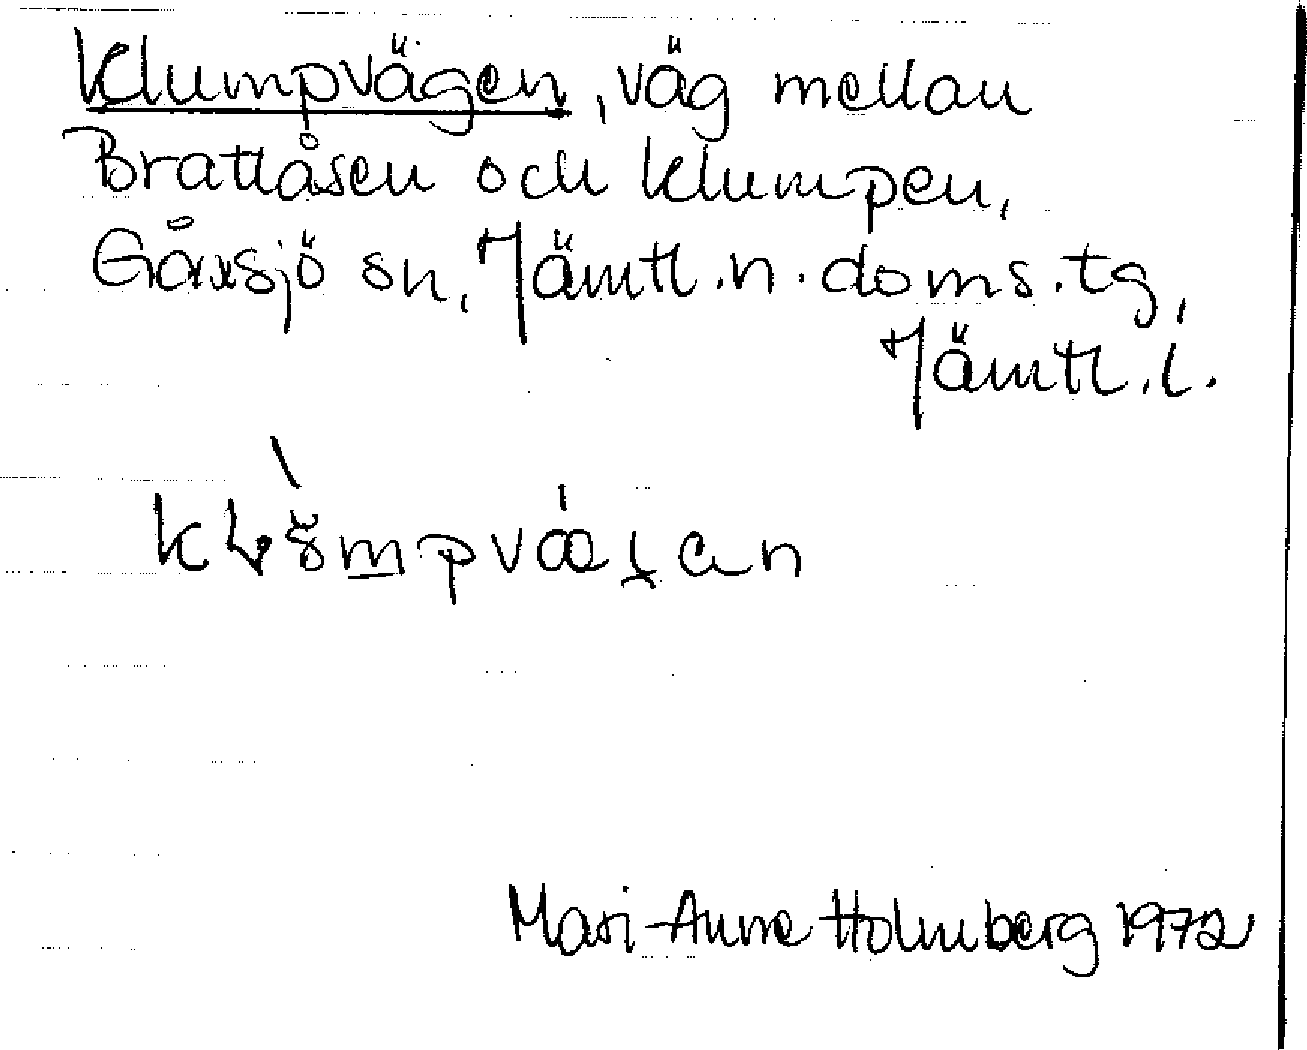 Klumpvägen, väg mellan
Brattåsen och Klumpen,
Gåxsjö sn, Jämtl.n.doms.tg,
Jämtl.l.
Mari-Anne Holmberg 1972